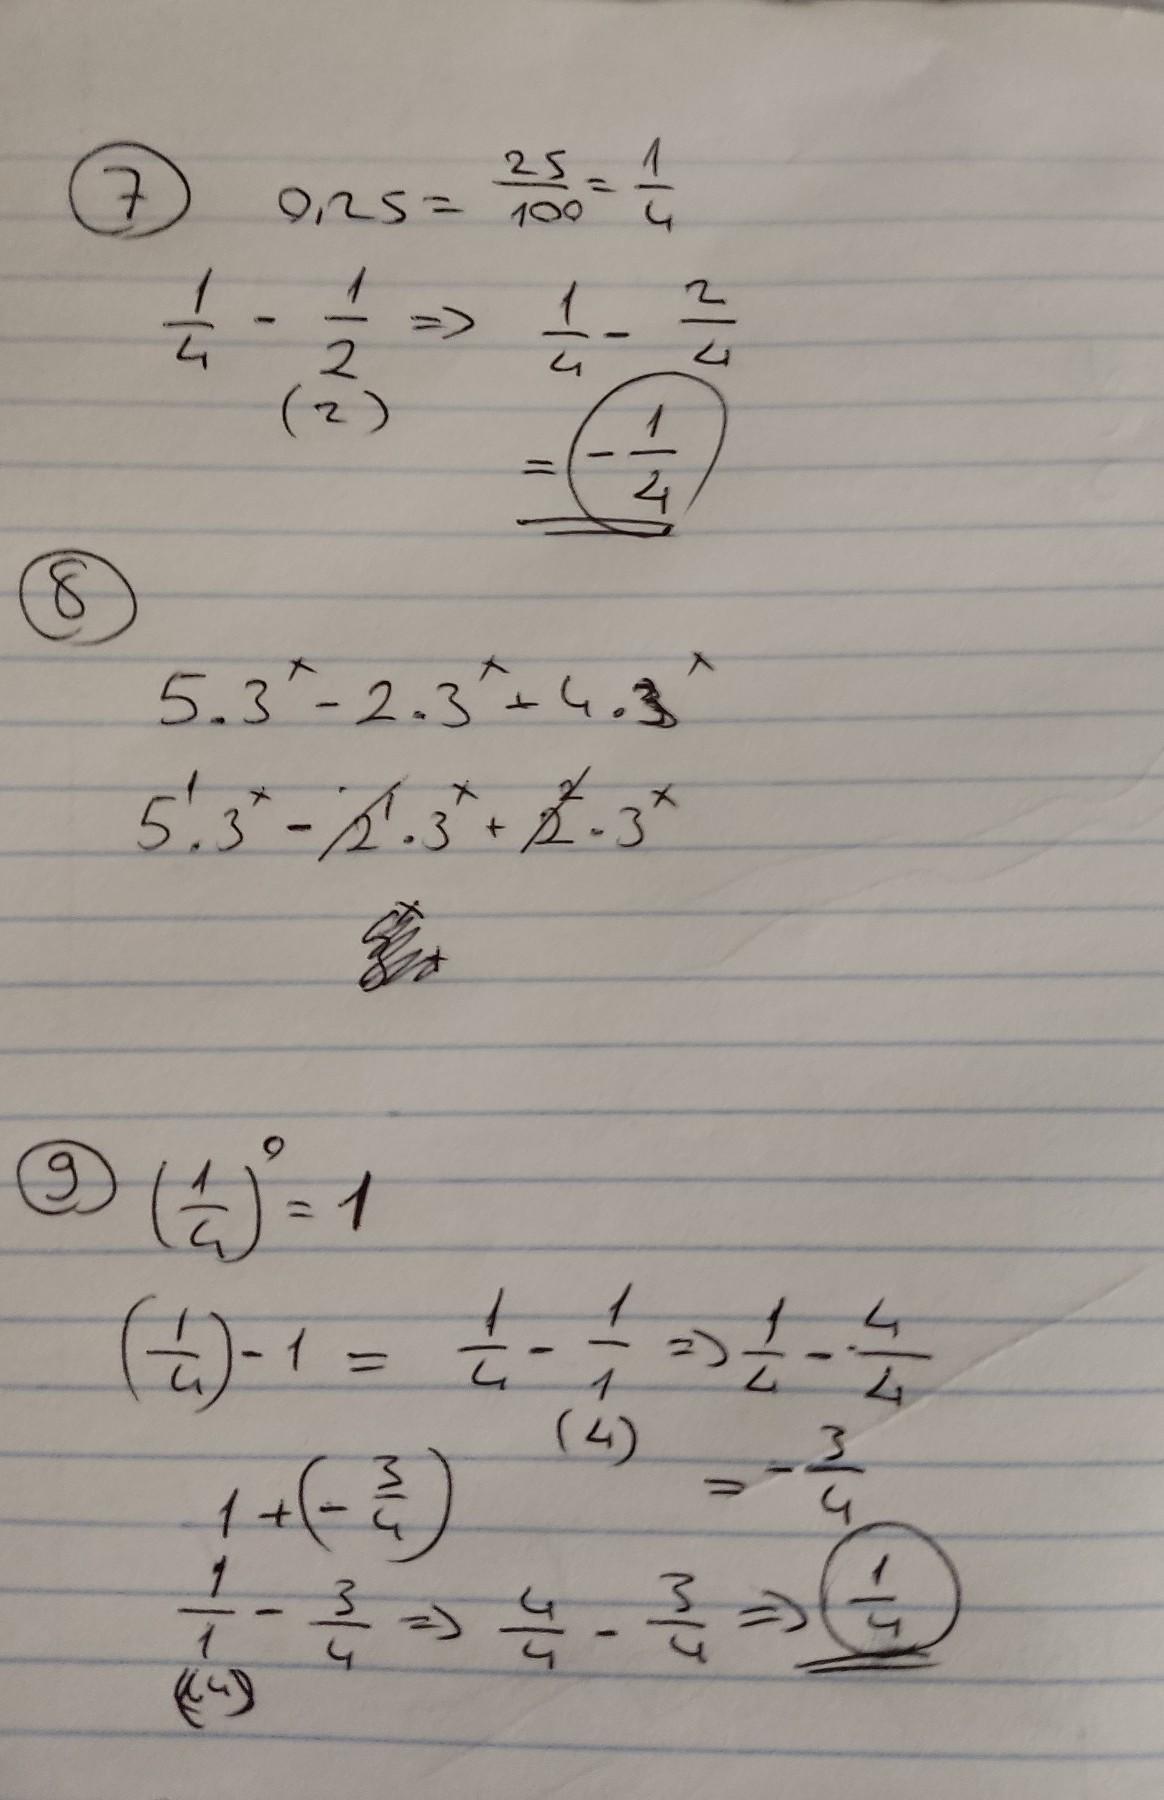 7 0,25 = 25/100 = 1/4
1/4 - 1/2 => 1/4 - 2/4
(2)
= - 1/4
8
5.3^x - 2.3^x + 4.3^x
5^1.3^x - 2^1.3^x + 2^2.3^x
9 (1/4)^0 = 1
(1/4) - 1 = 1/4 - 1/1 => 1/4 - 4/4
(4)
= - 3/4
1 + (- 3/4)
1/1 - 3/4 => 4/4 - 3/4 => 1/4
(4)